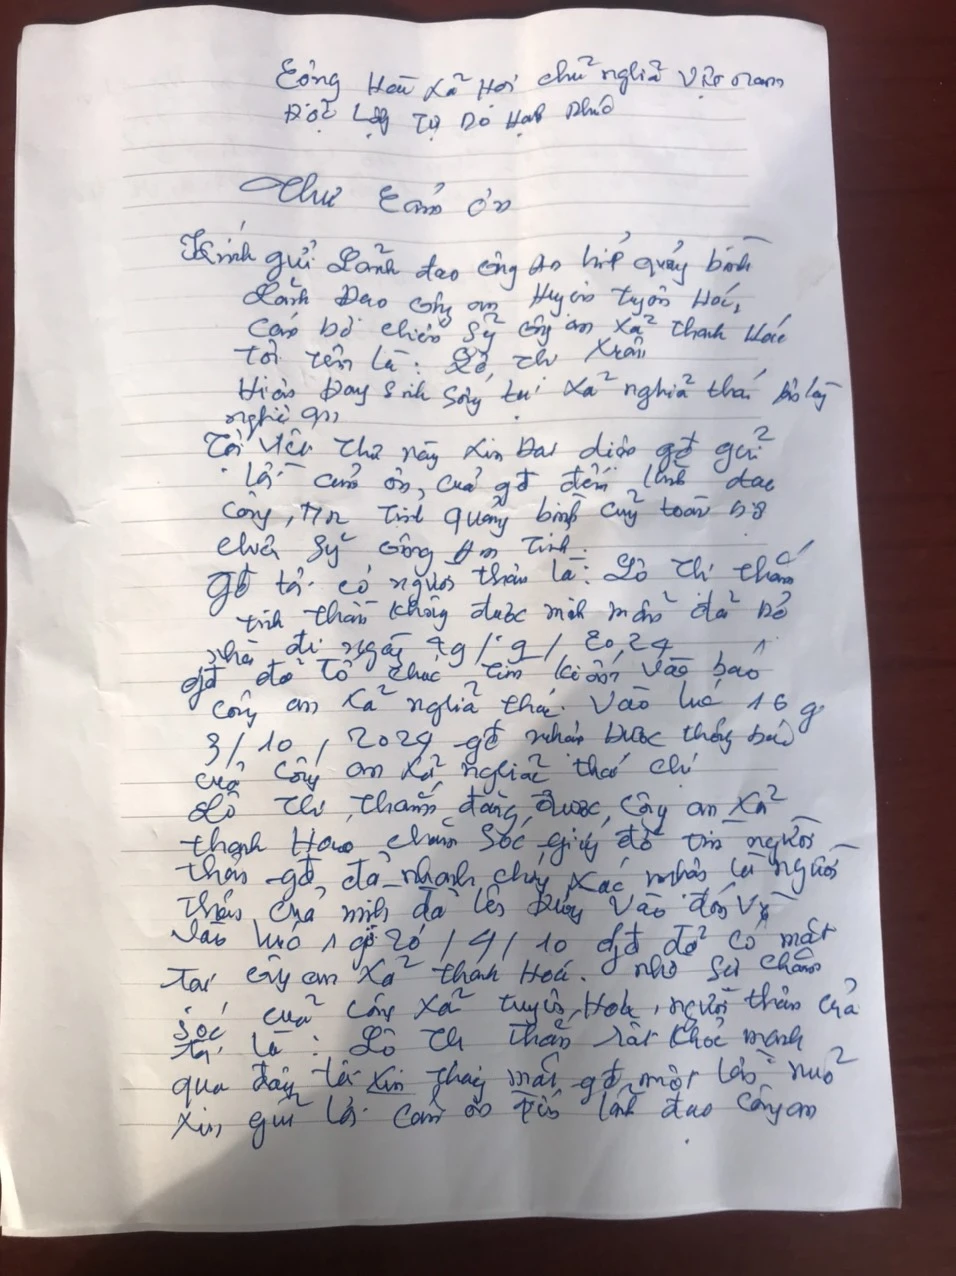 Cộng Hòa Xã Hội chủ nghĩa Việt nam
Độc Lập Tự Do Hạnh Phúc
Thư Cảm ơn
Kính gửi Lãnh đạo công an tỉnh quảng bình
Lãnh Đạo công an Huyện tuyên Hoá,
Cán bộ chiến sỹ công an xã thanh Hoá
tôi tên là: thị Xuân
Hiện Đay sinh sống tại xã nghĩa thái
nghệ an
Tôi viết thư này xin Đại diện gđ gửi
lời cảm ơn, của gđ đến lãnh đạo
công, an tỉnh quảng bình cùng toàn bộ
chiến sỹ công an tỉnh.
gđ tôi có người thân là: Lô thị thắm
tinh thần không được minh mẩn đã bỏ
nhà đi ngày 29/9/2024
gđ đã tổ chức tìm kiếm và báo
công an xã nghĩa thái. Vào lúc 16g
3/10/2024 gđ nhận được thông báo
của công an xã nghĩa thái chị
Lô thị thắm đang được, công an xã
thanh Hoá chăm sóc giúp đỡ tìm người
thân gđ, đã nhanh chóng xác nhận là người
thân của mình đã lên Đường vào đón về
vào lúc 1g 20/4/10 gđ đã có mặt
tại công an xã thanh Hoá. nhờ sự chăm
sóc của công xã tuyên Hoá, người thân của
tôi là: Lô thị thắm rất khỏe mạnh
qua đây tôi xin thay mặt gđ một lần nữa
xin gửi lời cảm ơn lãnh đạo công an